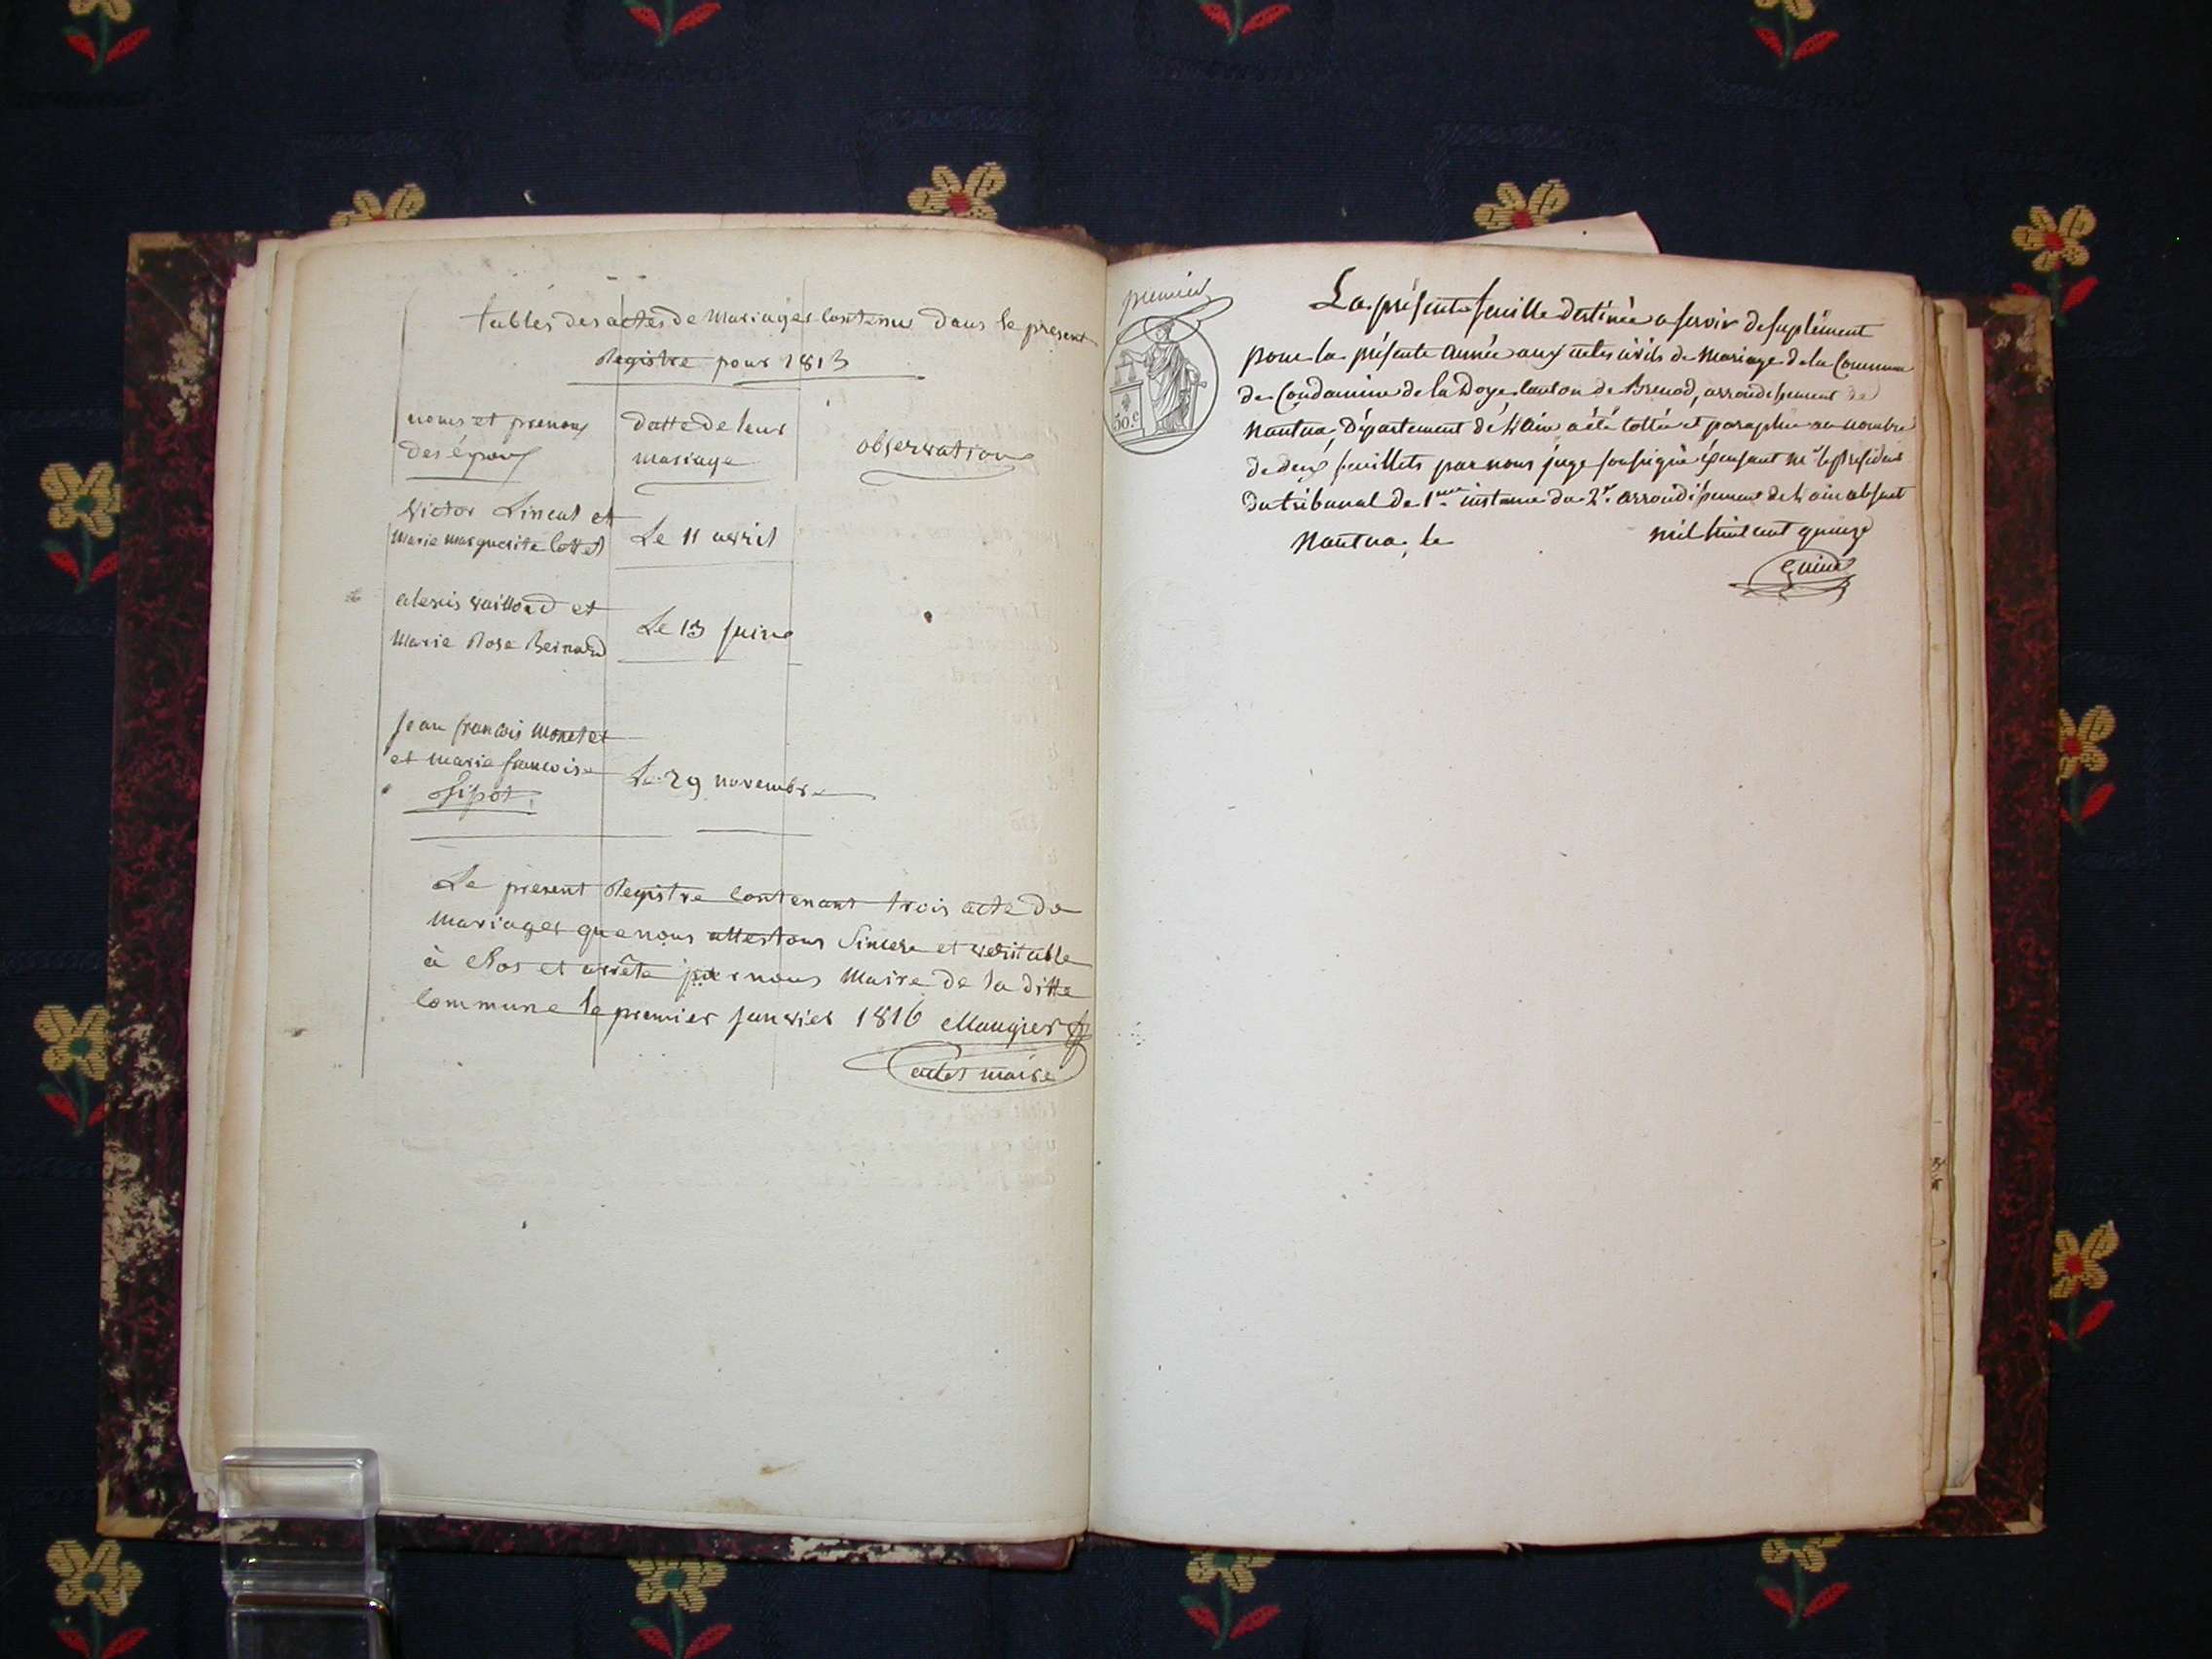 tables des actes de Mariages Contenu dans le present
Registre pour 1813
noms et prenoms
des époux
datte de leur
mariage
observation
Victor Linent et
Marie Marguerite Cottet
Le 11 avril
alexis vaillond et
Marie Rose Bernard
Le 13 juin
Jean francois Monet et
et marie francoise
Le 29 novembre
Le present Registre Contenant trois acte de
Mariages que nous attestons Sincere et veritable
à Clos et arrête par nous Maire de la ditte
Commune le premier janvier 1816 Maugier
maire
premier
50 c.
La présente feuille destinée a servir de suplément
pour la présente année aux actes civils de Mariage de la Commune
de Condamine de la Doye canton de Brenod, arrondissement de
Nantua, Département de l'Ain a été cottée et paraphée au nombre
de deux feuillets par nous juge soussigné éxerçant Mr. le président
du tribunal de 1ere instance du 2e. arrondissement de l'ain absent
Nantua, le mil huit cent quinze